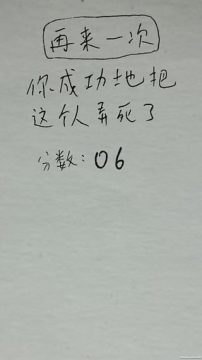 再来一次
你成功地把
这个人弄死了
分数：06